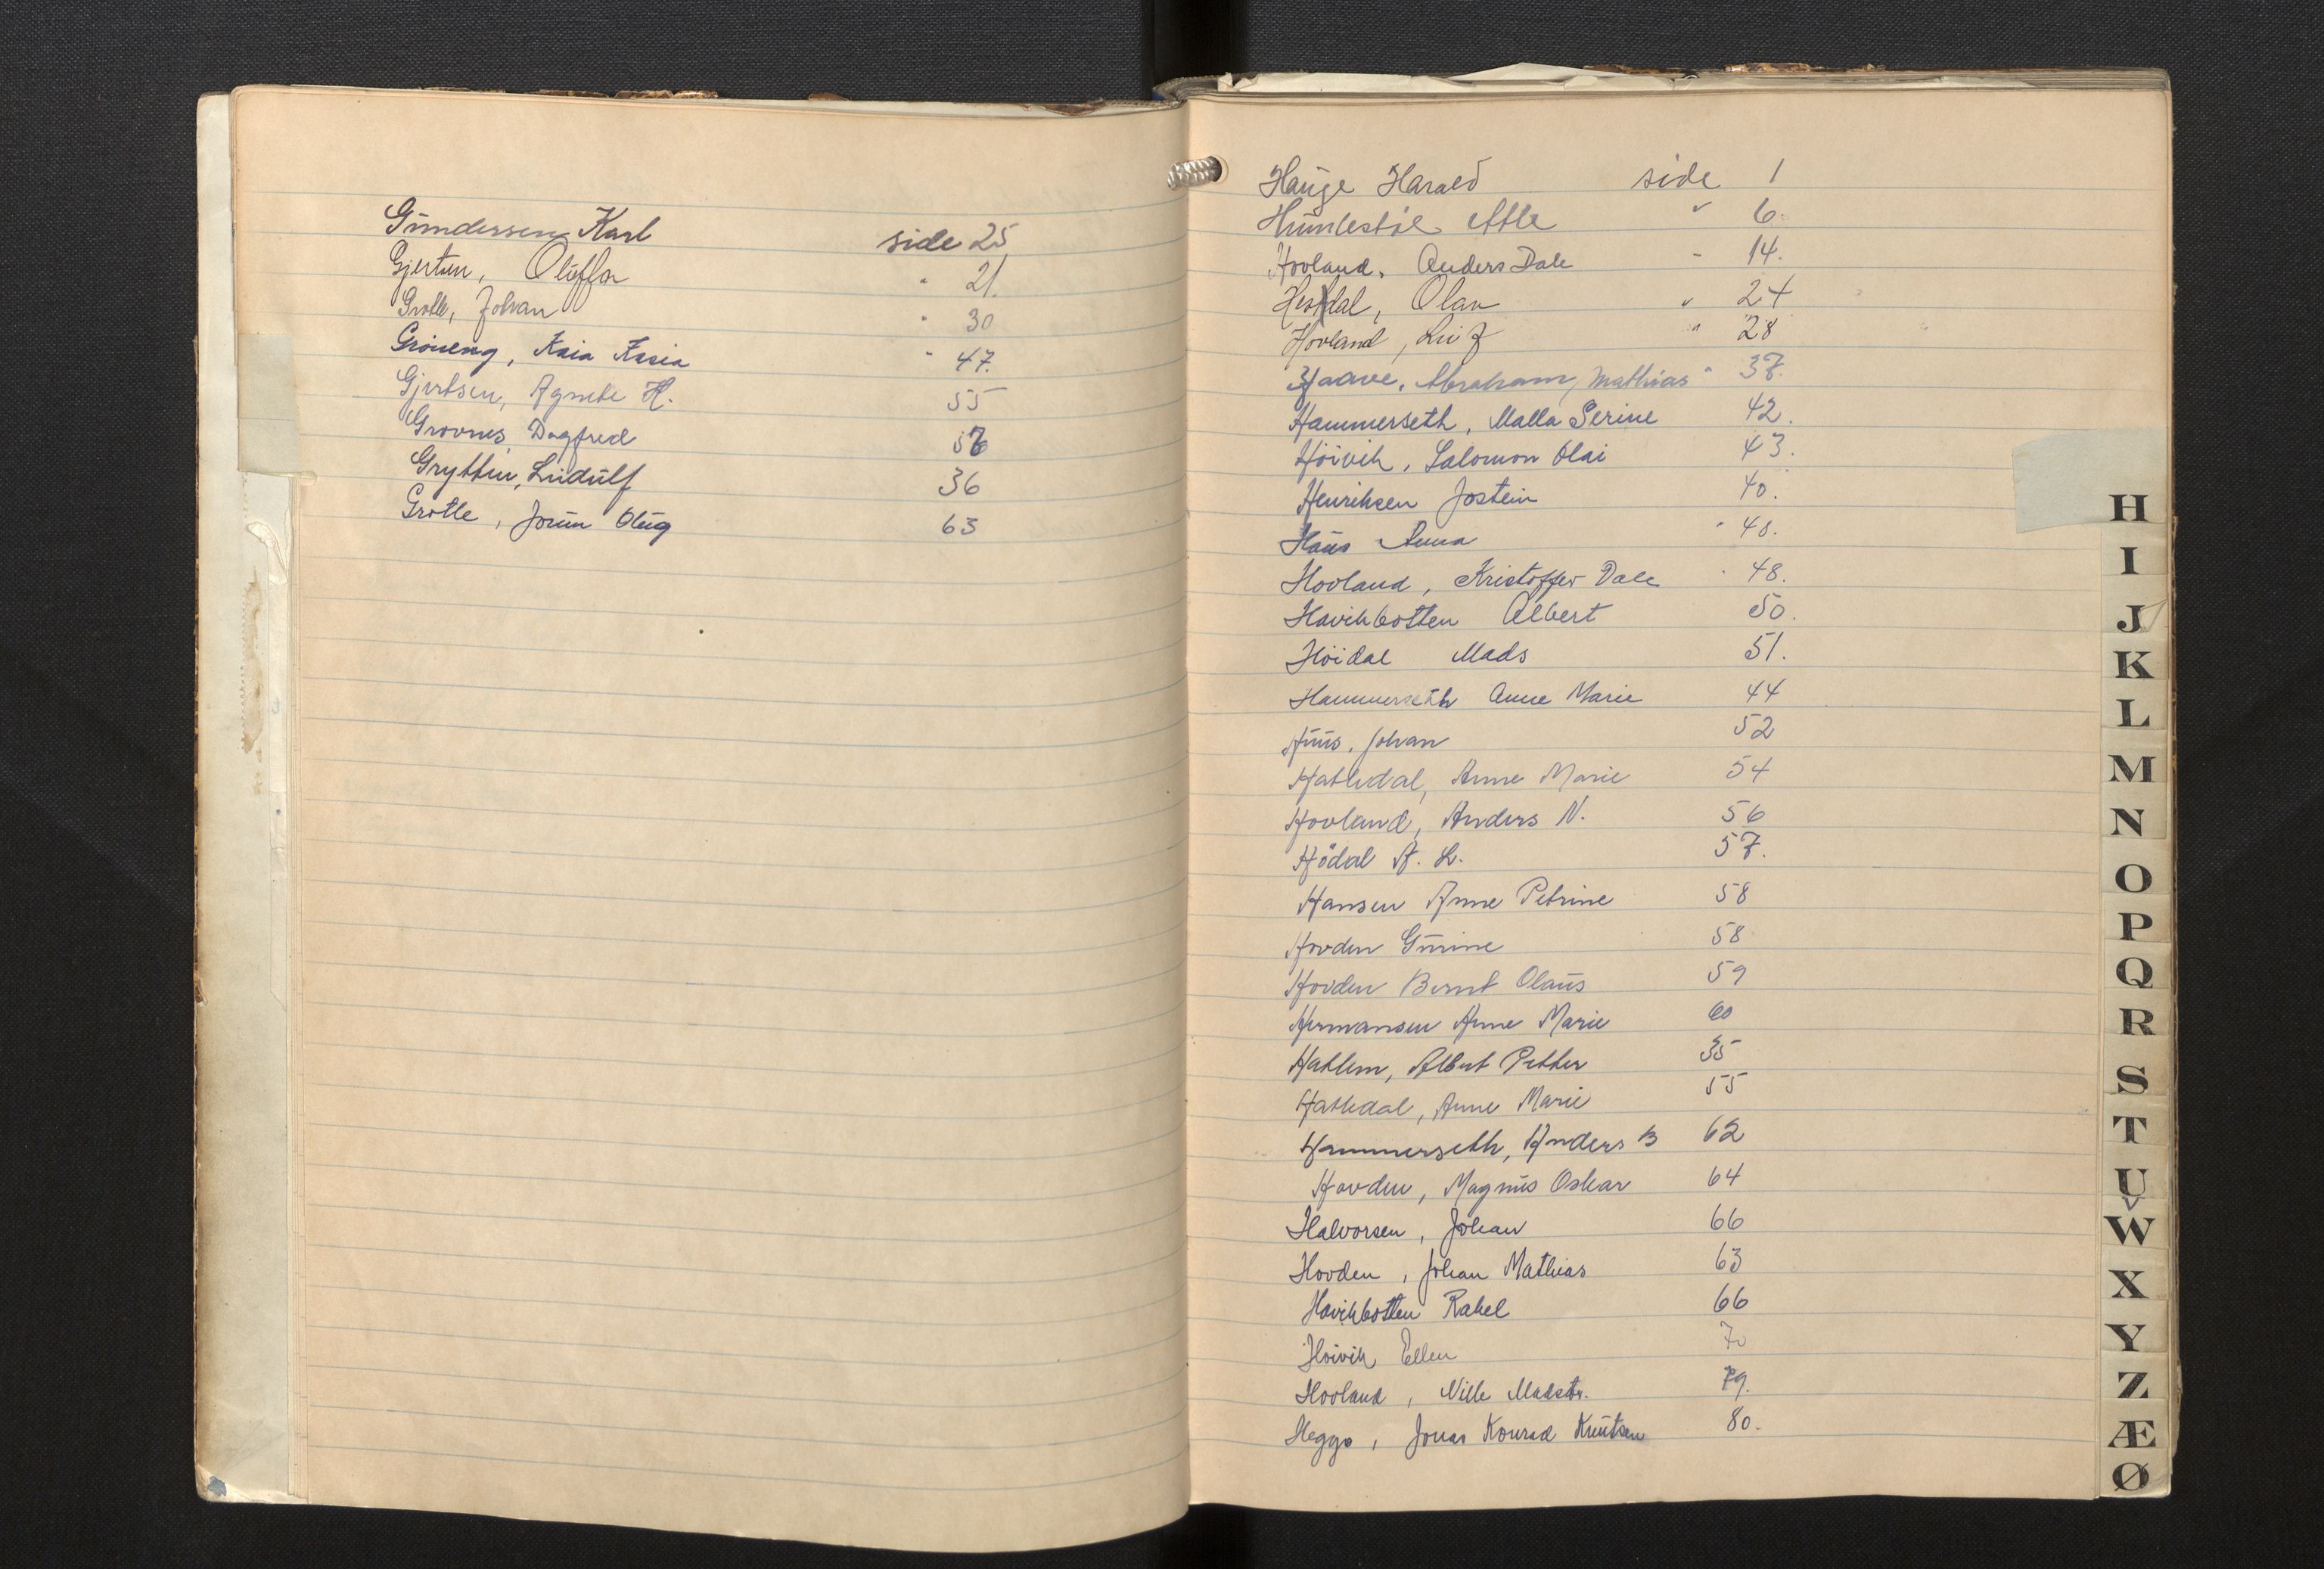 Gundersen Karl side 25
Gjertsen, Oluffa " 21.
Grotle, Johan " 30
Gröneng, Kaia Kasia " 47.
Gjertsen, Agnete H. 55
Grovnes Dagfred
Gryttin, Lüdülf 36
Grotle, Jorün Olüg 63
Haüge Harald side 1
Hümlestöl Atle " 6.
Hovland, Anders Dale " 14.
Hesdal, Olav " 24
Hovland, " 28
Haave, Abraham, Mathias " 37.
Hammerseth, Malla Serine 42.
Höivik, Salomon Olai 43.
Henriksen Jostein 40.
Haüs Anna " 48.
Hovland, Kristoffer Dale " 48.
Havikbotten Albert 50.
Höidal Mads 51.
Hammerseth Anne Marie 44
Hüüs, Johan 52
Hatledal, Anne Marie 54
Hovland, Anders N. 56
Hödal A. L. 57.
Hansen Anne Petrine 58
Hovden Gürine 58
Hovden Bernt Olaüs 59
Hermansen Anne Marie 60
Hatlem, Albert Petter 35
Hatledal, Anne Marie 55
Hammerseth, Anders B 62
Hovden, Magnüs Oskar 64
Halvorsen, Johan 66
Hovden, Johan Mathias 63
Havikbotten Rakel 66
Höivik Ellen 70
Hovland, Nille Madstr. 79.
Heggø, Jonas Konrad Knütsen 80.
H
I
J
K
L
M
N
O
P
Q
R
S
T
U
V
W
X
Y
Z
Æ
Ø